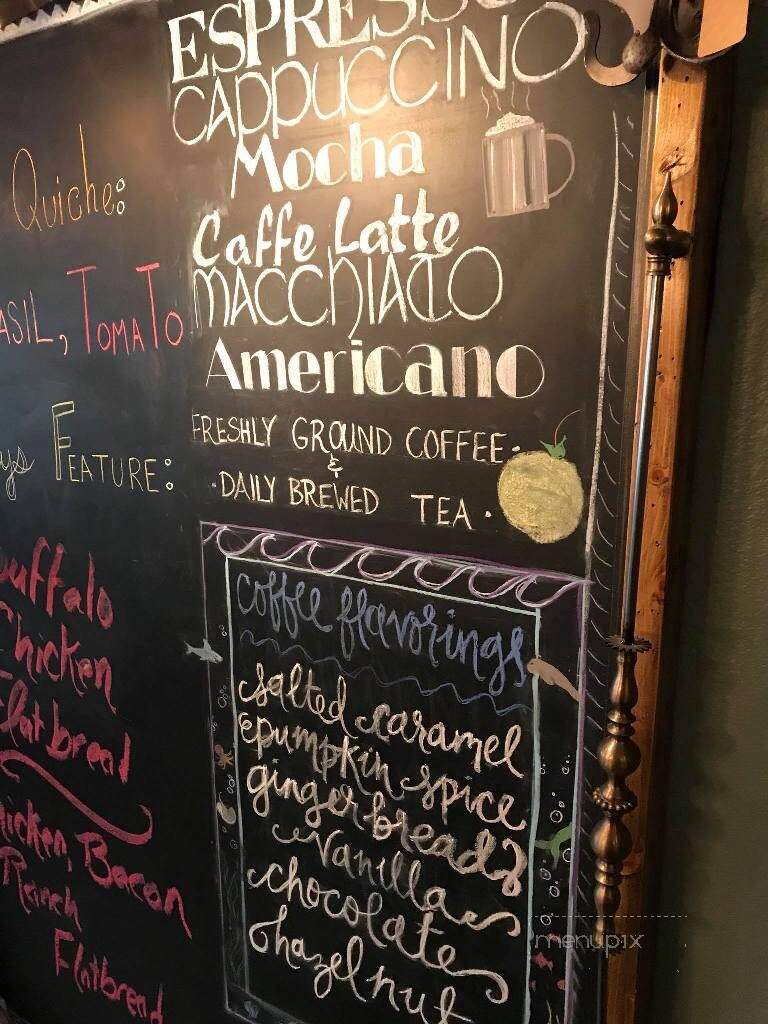 Quiche:
TOMATO
FEATURE:
Chicken
Flatbread
Bacon
Ranch
Flatbread
ESPRESSO
CAPPUCCINO
Mocha
Caffe Latte
MACCHIATO
Americano
FRESHLY GROUND COFFEE
&
·DAILY BREWED TEA·
coffee flavorings
salted caramel
pumpkin spice
gingerbread
vanilla
chocolate
hazelnut
menupix